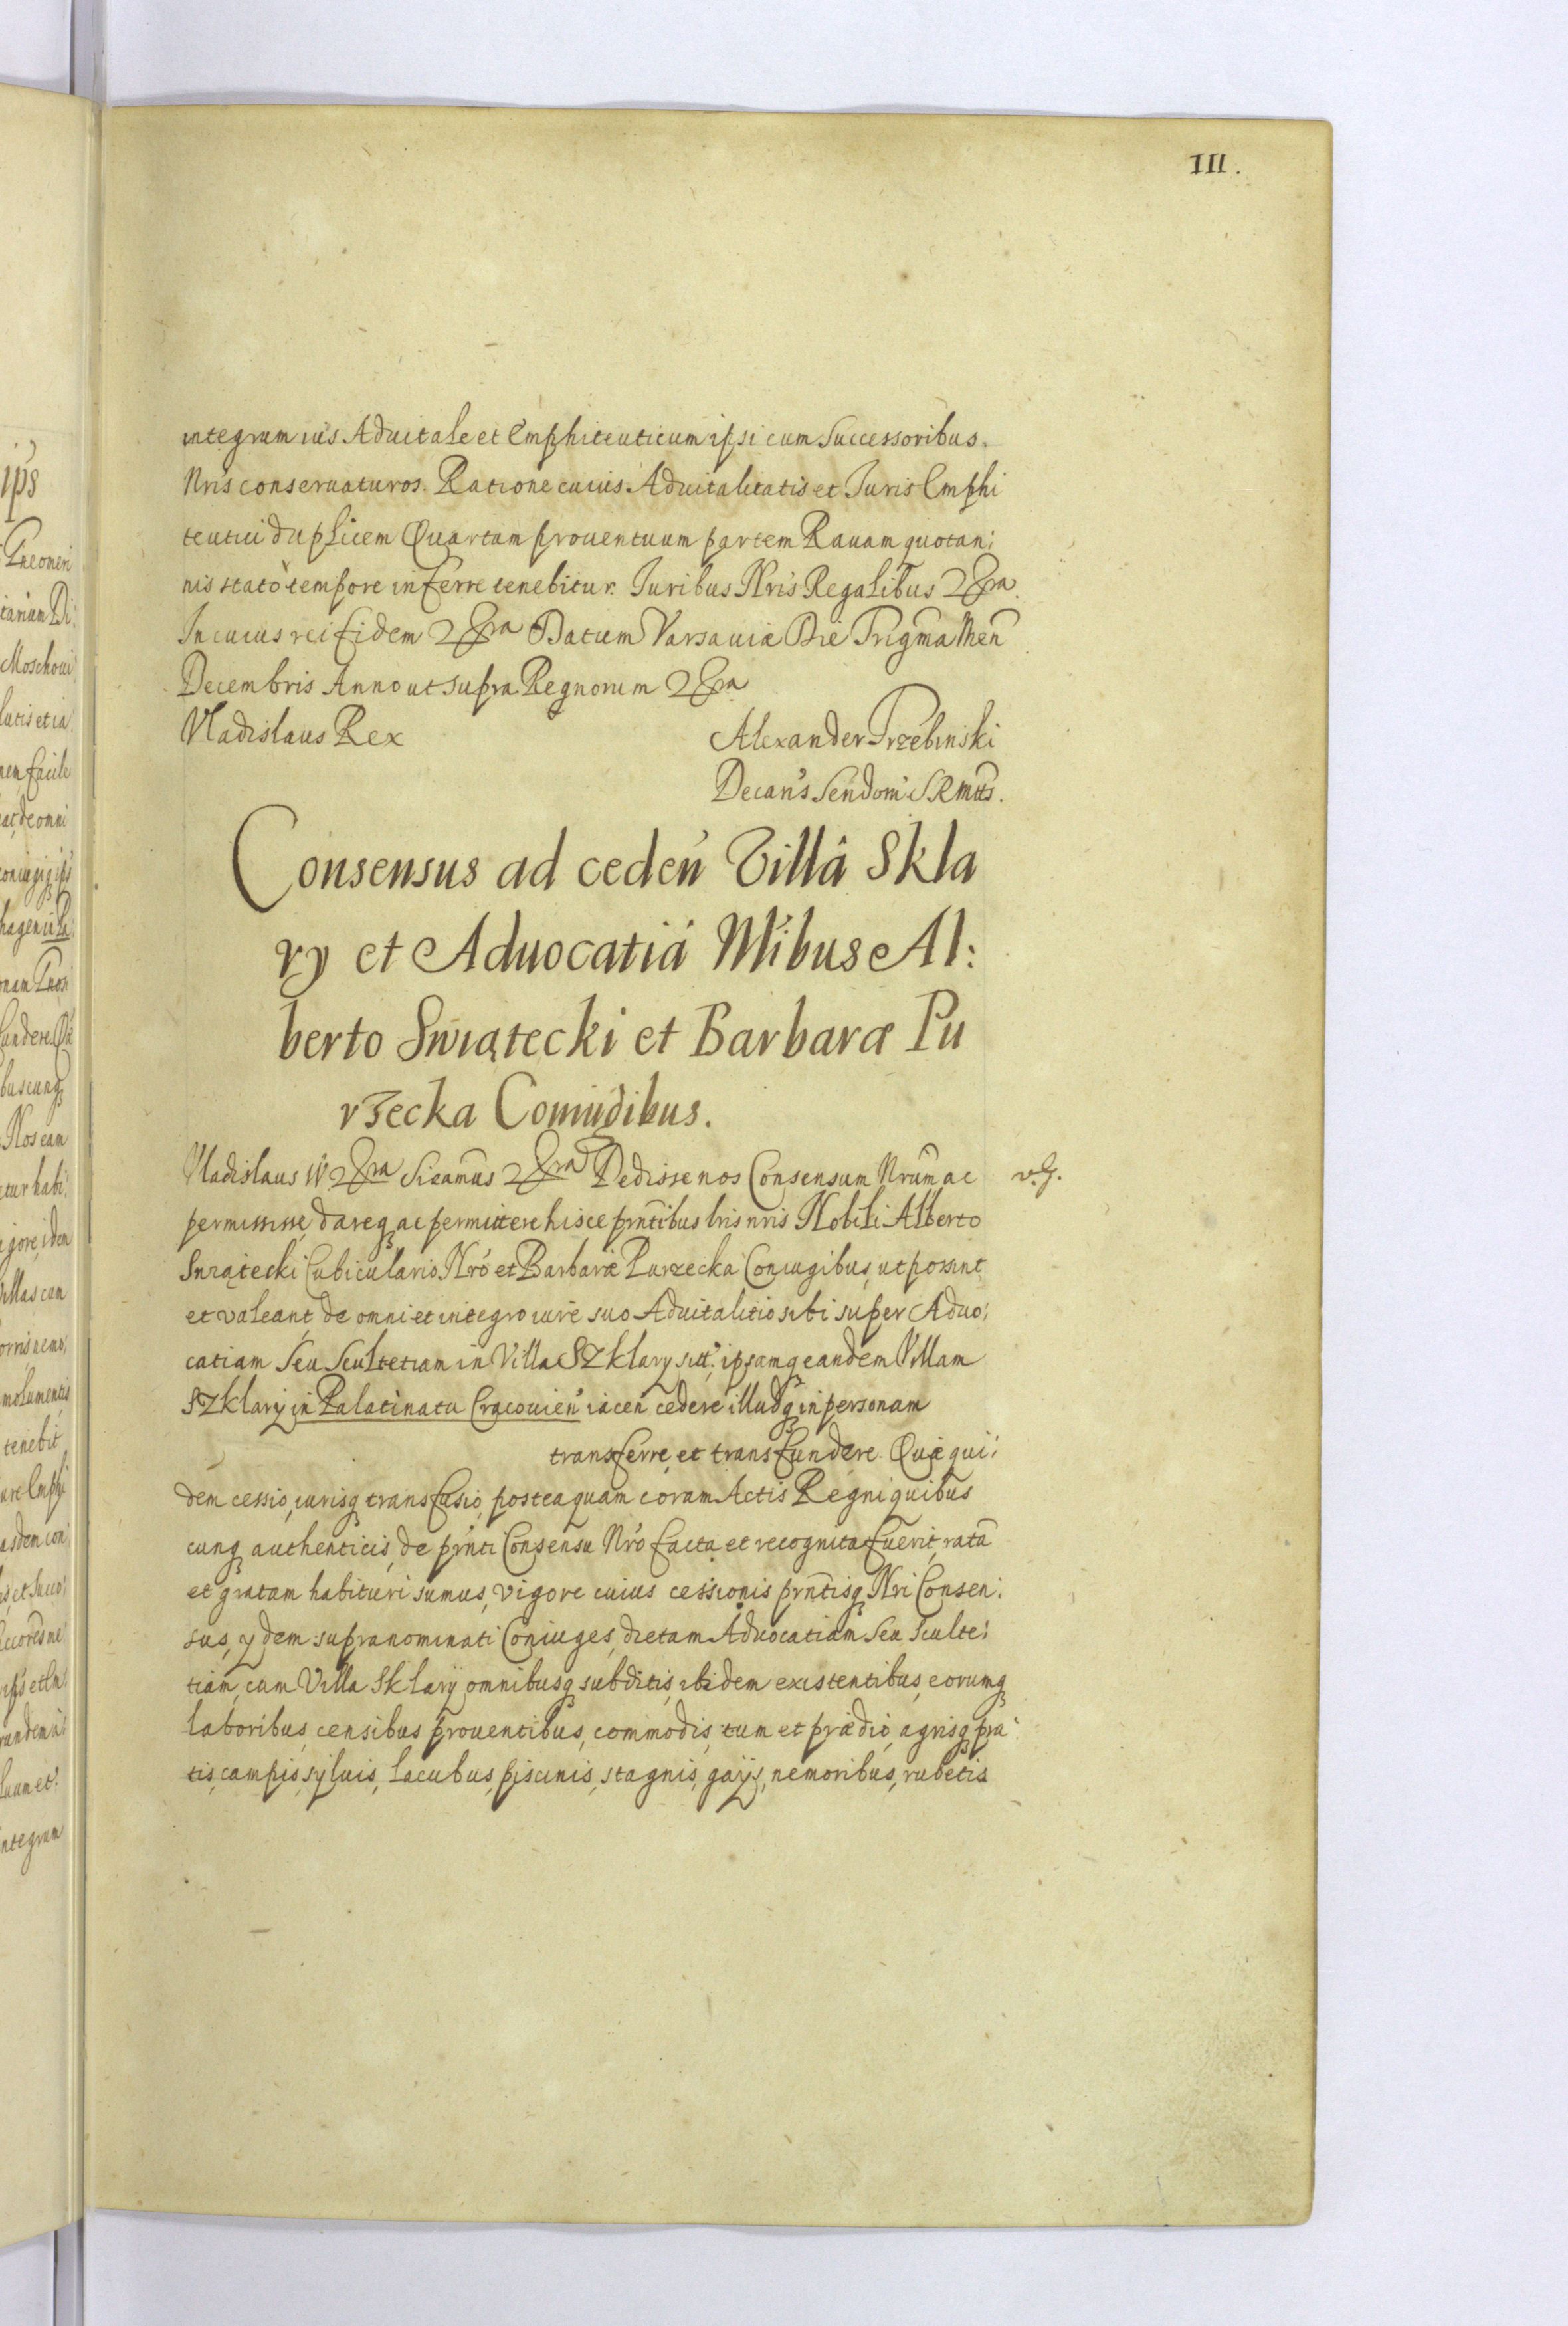 III.
integrum ius Aduitale et Emphiteuticum ipsi cum Successoribus.
Nris conseruaturos. Ratione cuius Aduitalitatis et Juris Emphi
teutici duplicem Quartam prouentuum partem Rauam quotan:
nis statò tempore inferre tenebitur. Juribus Nris Regalibus
In cuius rei fidem Datum Varsauiæ Die Trigma Men
Decembris Anno ut supra Regnorum
Vladislaus Rex
Alexander Trzebinski
Decan's Sendom S R Mtts.
Consensus ad ceden Villâ Skla
ry et Aduocatiá Mibus Al:
berto Swiątecki et Barbaræ Pu
rzecka Coniugibus.
Vladislaus IV Dedisse nos Consensum Nrum ac v. G.
permisisse, dareq ac permittere hisce pntibus lris nris Nobili Alberto
Swiątecki Cubiculario Nro et Barbaræ Purzecka Coniugibus, ut possint
et valeant de omni et integro iure suo Aduitalitio sibi super Aduo:
catiam seu Scultetiam in Villa SZklary sitt: ipsamq eandem Villam
SZklary in Palatinatu Cracouien iacen cedere illudq in personam
transferre, et transfundere. Quæ qui:
dem cessio, iurisq transfusio, posteaquam coram Actis Regni quibus
cunq authenticis, de pnti Consensu Nro facta et recognita fuerit, ratã
et gratam habituri sumus, vigore cuius cessionis pntisq Nri Consen:
sus, ydem supranominati Coniuges, dictam Aduocatiam seu Sculte:
tiam, cum Villa Sklary omnibusq subditis, ibidem existentibus, eorumq
laboribus, censibus prouentibus, commodis, tum et prædio, agrisq pra
tis, campis, syluis, lacubus, piscinis, stagnis, gays, nemoribus, rubetis